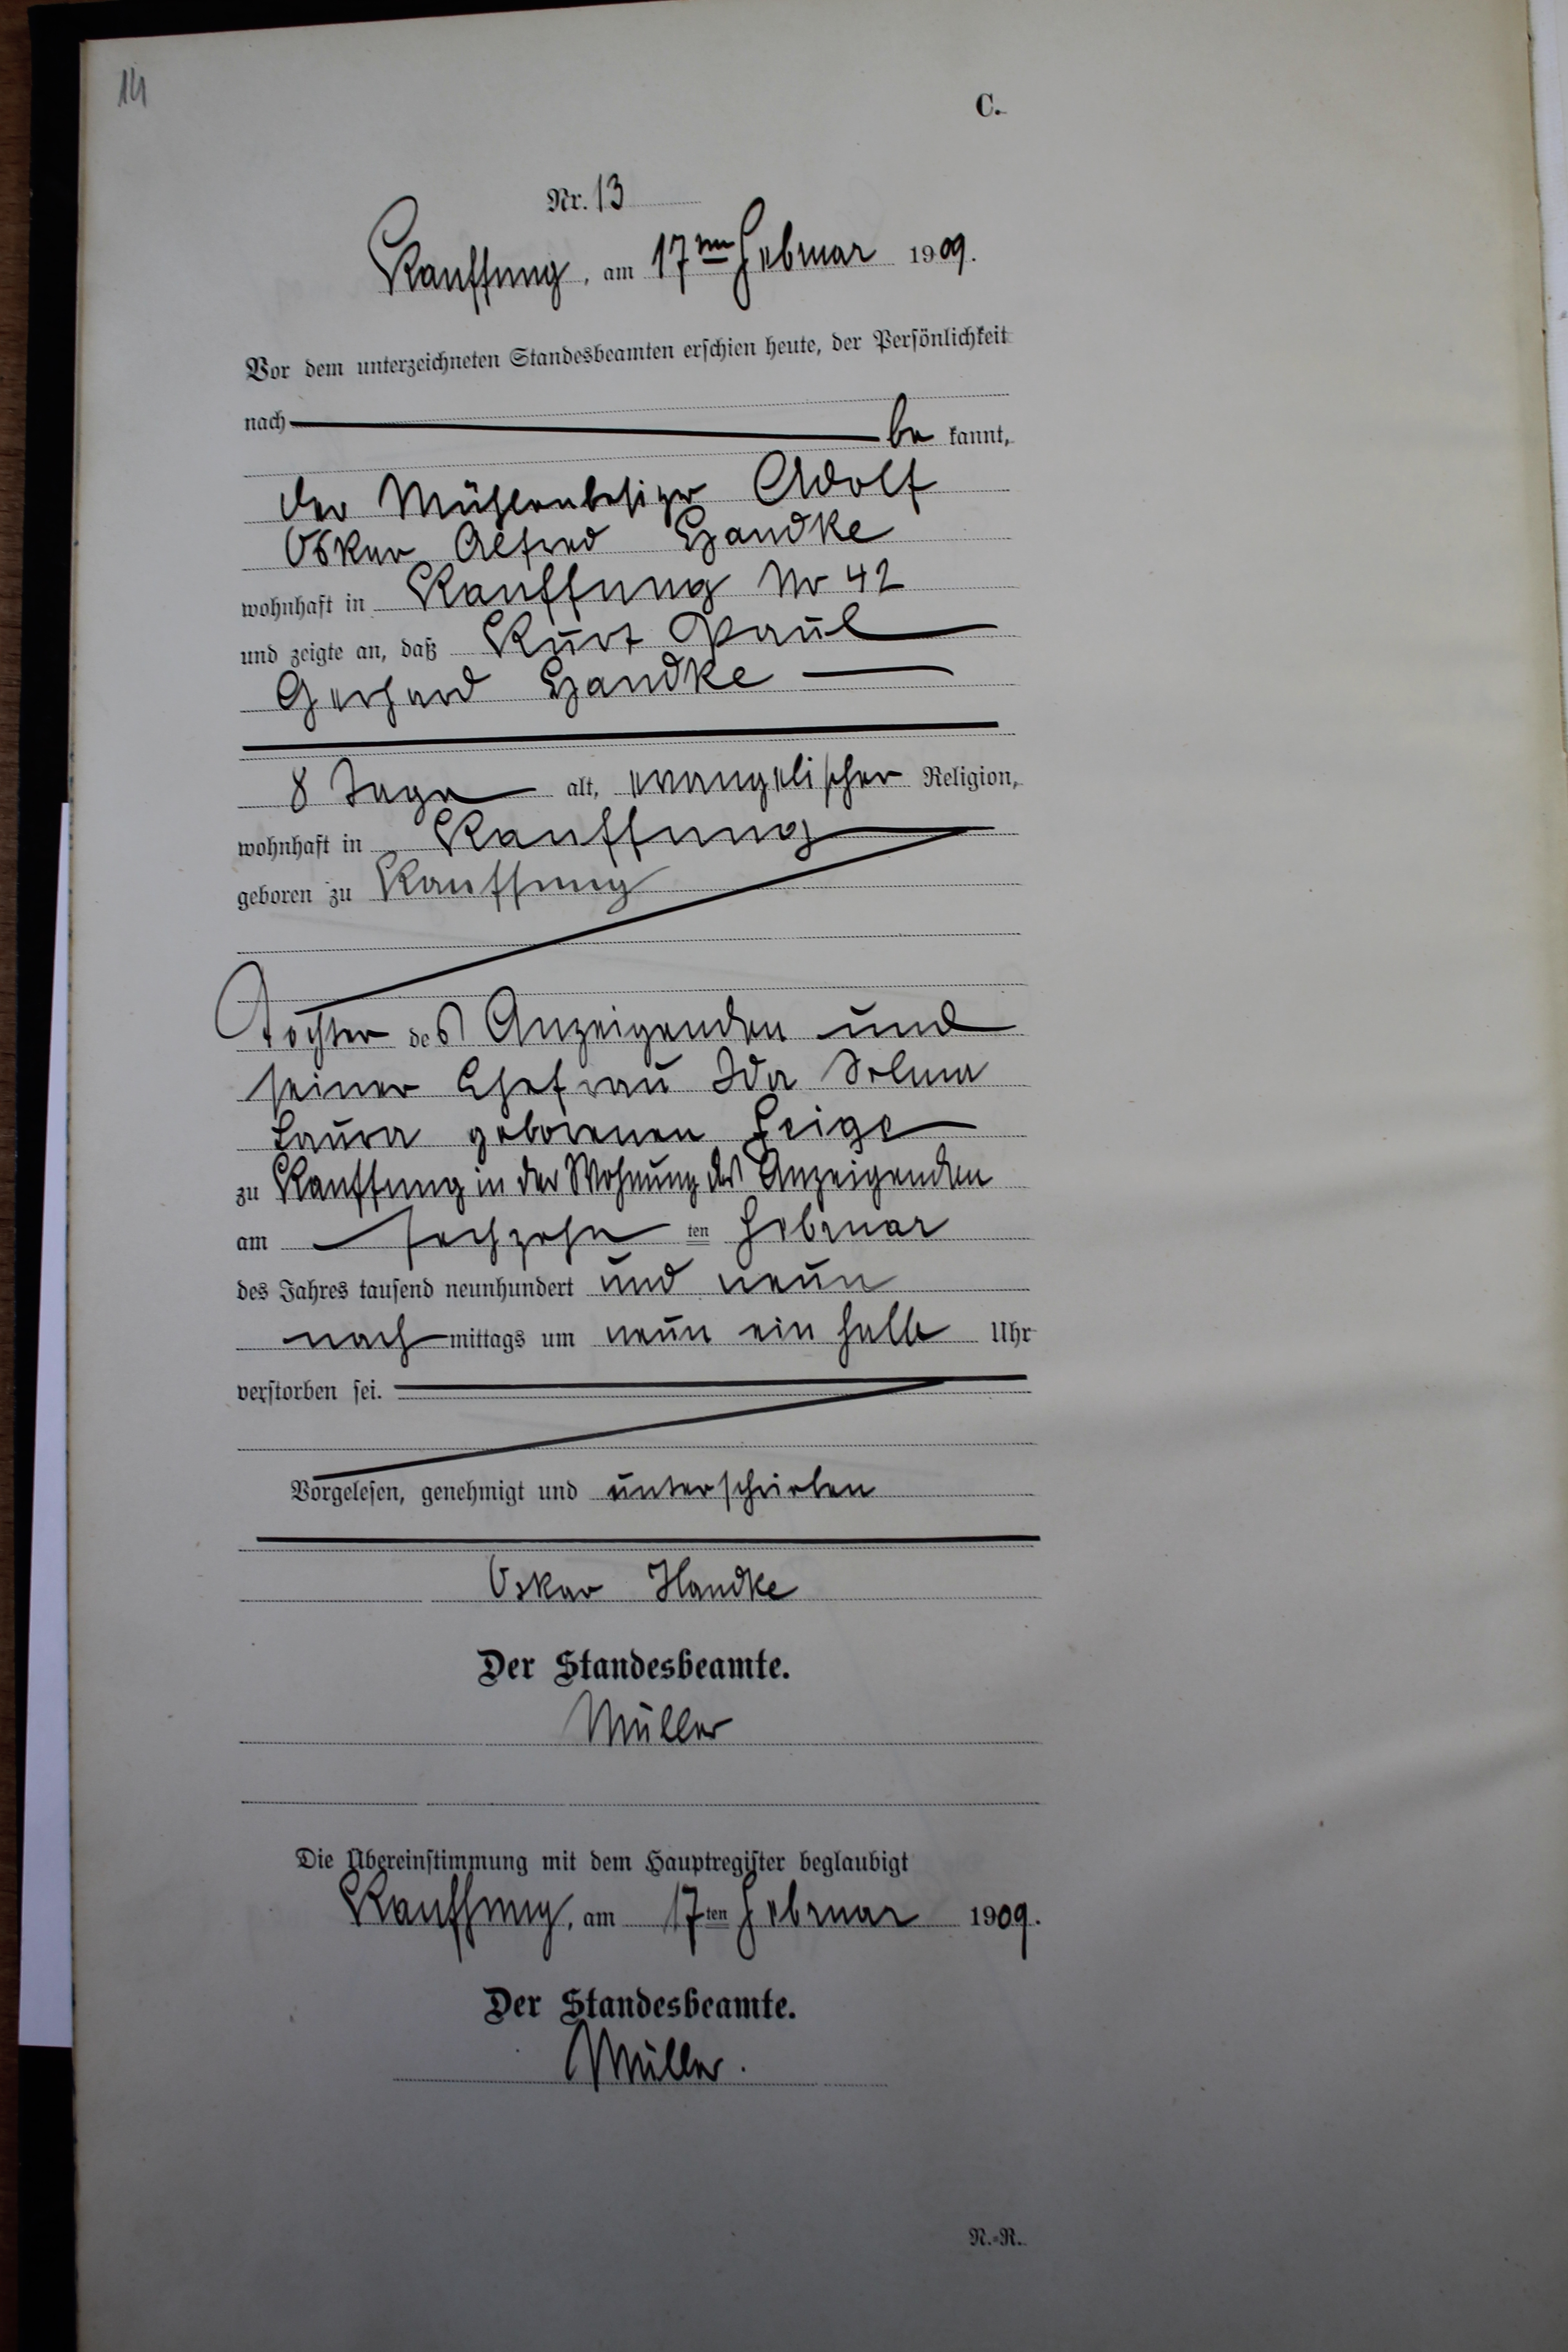 14
C.
Nr. 13
Kauffung, am 17ten Februar 1909.
Vor dem unterzeichneten Standesbeamten erschien heute, der Persönlichkeit
nach
be kannt,
der Mühlenbesizer Adolf
Oskar Alfred Handke
wohnhaft in Kauffung No 42
und zeigte an, daß Kurt Paul
Gerhard Handke
8 Tage alt, evangelischer Religion,
wohnhaft in Kauffung
geboren zu Kauffung
Tochter des Anzeigenden und
seiner Ehefrau Ida Selma
Laura geborenen Geige
zu Kauffung in der Wohnung des Anzeigenden
am sechzehn ten Februar
des Jahres tausend neunhundert und neun
nach mittags um neun ein halb Uhr
verstorben sei.
Vorgelesen, genehmigt und unterschrieben
Oskar Handke
Der Standesbeamte.
Müller
Die Übereinstimmung mit dem Hauptregister beglaubigt
Kauffung, am 17ten Februar 1909.
Der Standesbeamte.
Müller.
N.-R.